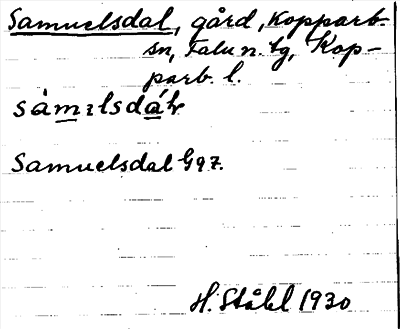 Samuelsdal, gård, Kopparb.
sn, Falu n. tg, Kop-
parb. l.
sàmɩlsdáɫ
Samuelsdal G97.
H. Ståhl 1930